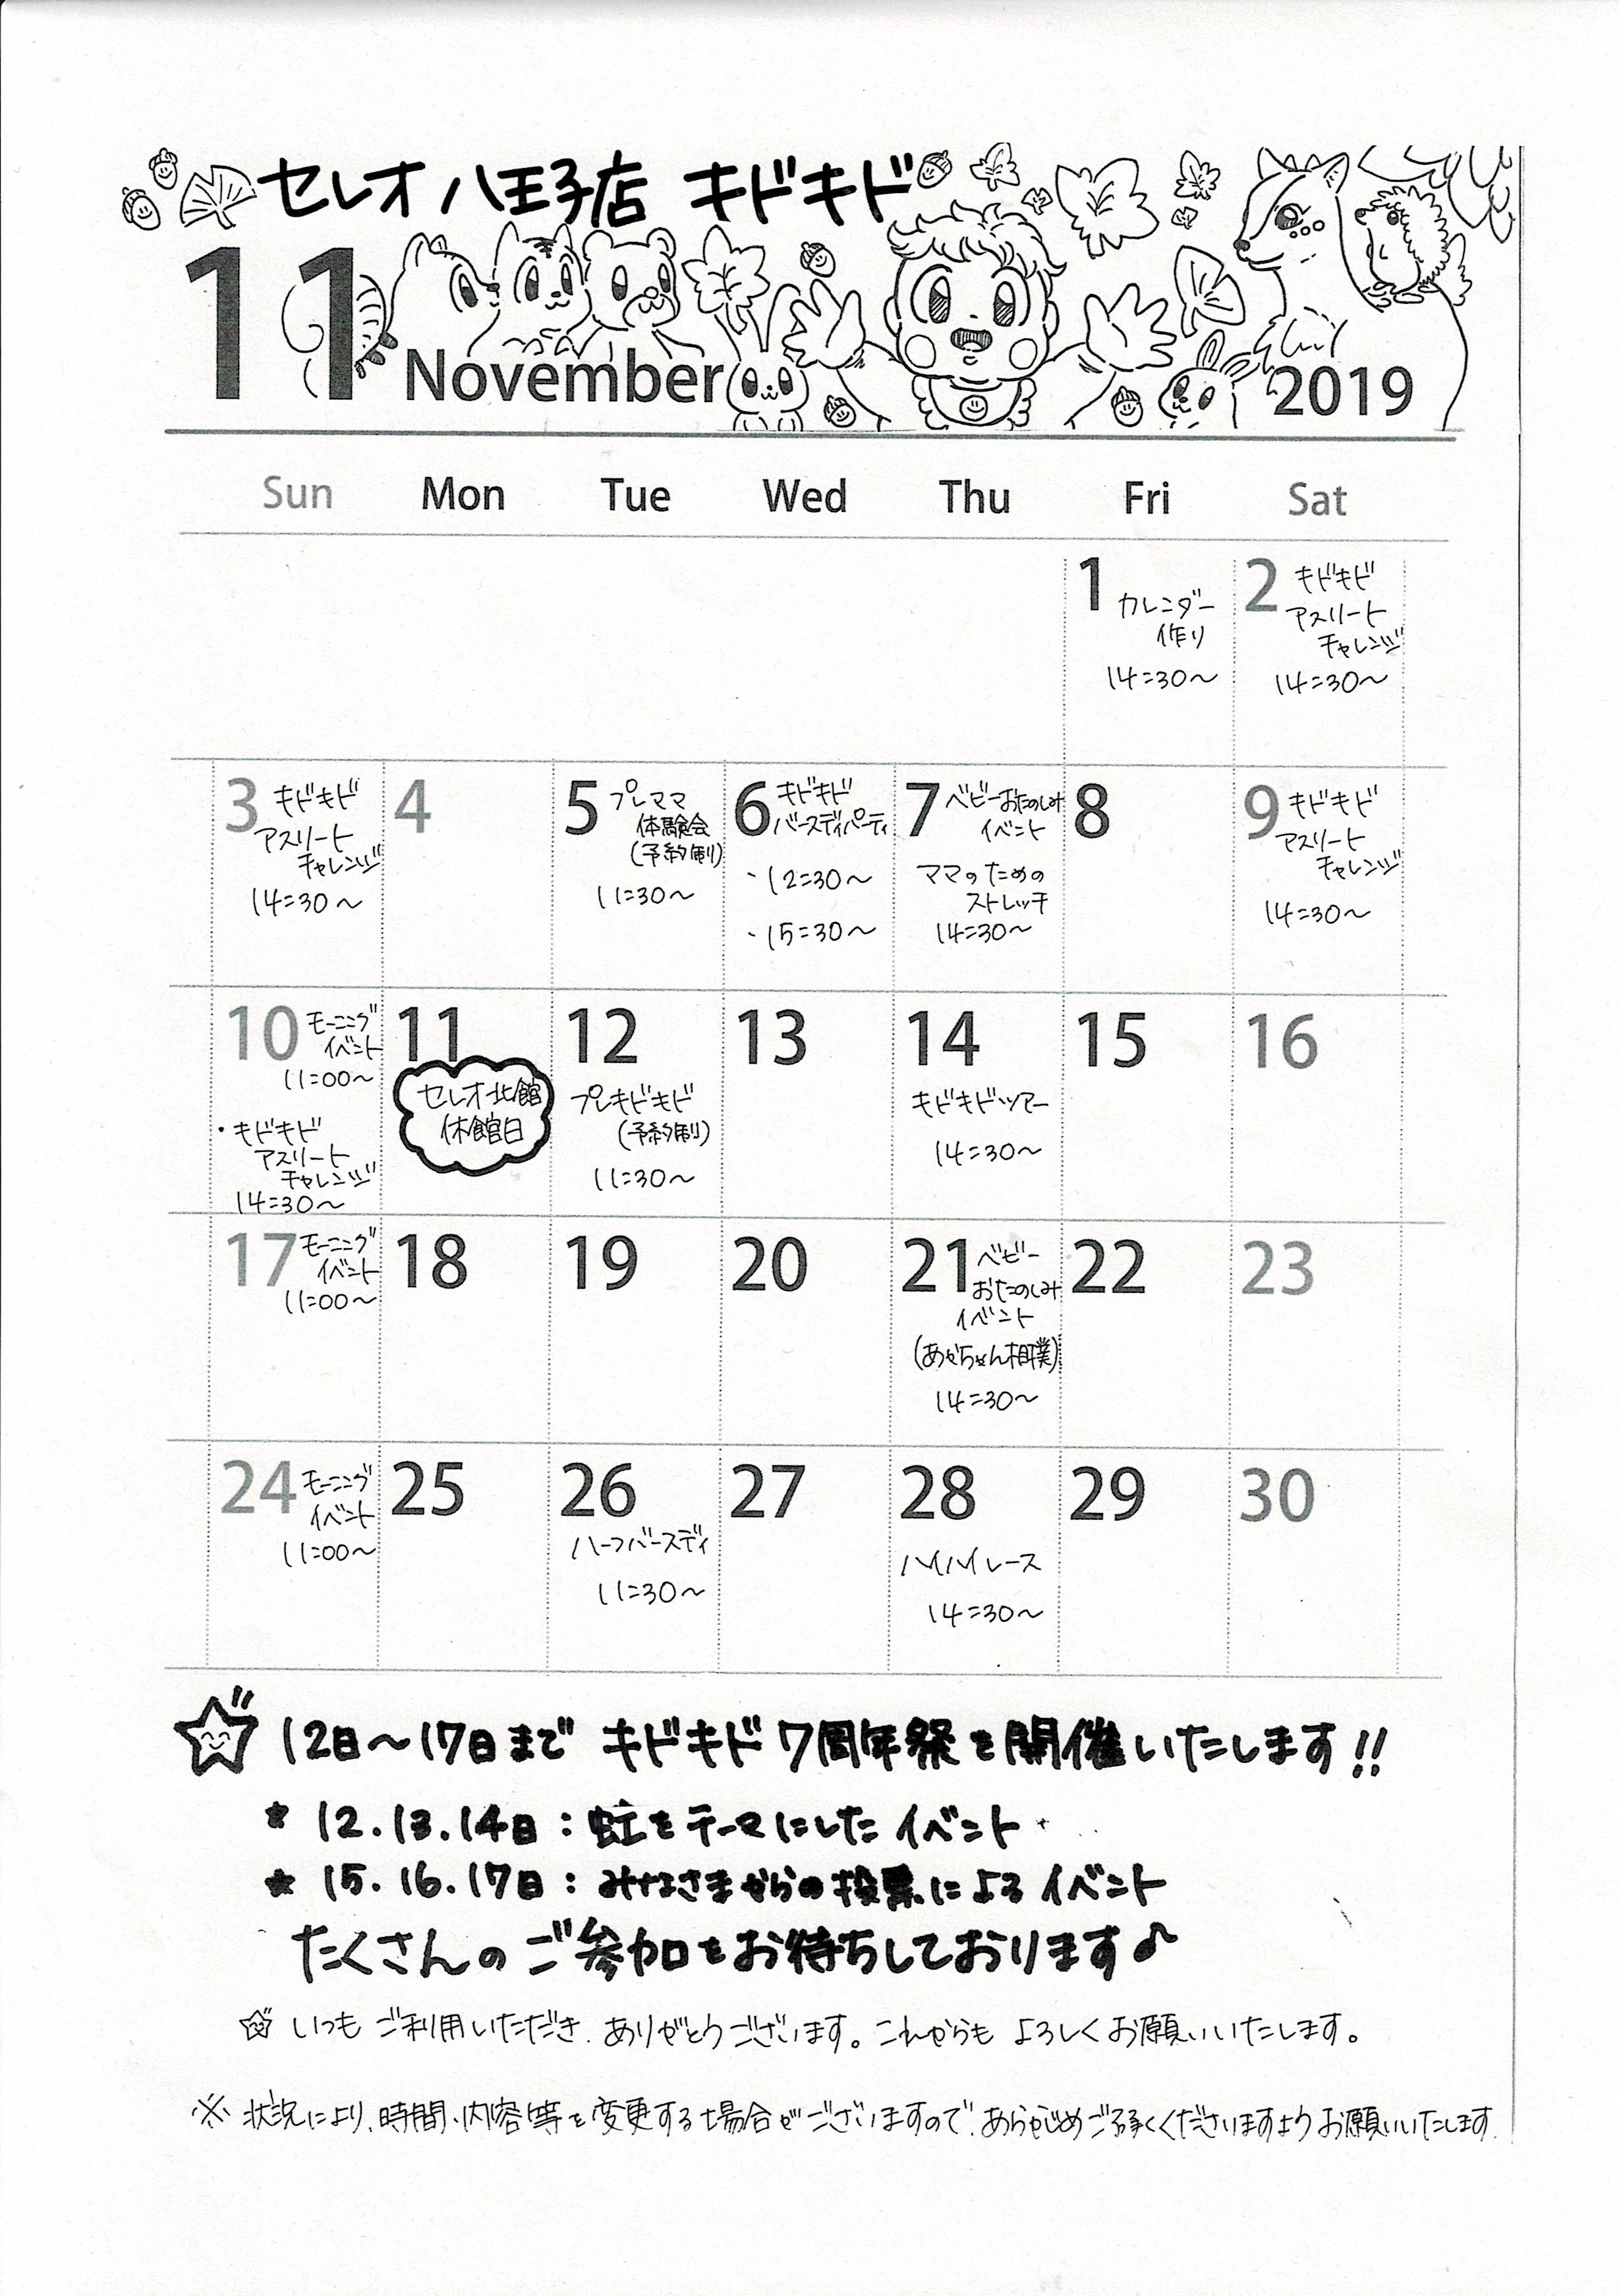 セレオ八王子店 キドキド
11 November 2019
Sun Mon Tue Wed Thu Fri Sat
1 カレンダー
作り
14:30～
2 キドキド
アスリート
チャレンジ
14:30～
3 キドキド
アスリート
チャレンジ
14:30～
4
5 プレママ
体験会
(予約制)
11:30～
6 キドキド
バースデイパーティ
・12:30～
・15:30～
7 ベビーおたのしみ
イベント
ママのための
ストレッチ
14:30～
8
9 キドキド
アスリート
チャレンジ
14:30～
10 モーニング
イベント
11:00～
・キドキド
アスリート
チャレンジ
14:30～
11
セレオ北館
休館日
12
プレキドキド
(予約制)
11:30～
13
14
キドキドツアー
14:30～
15
16
17 モーニング
イベント
11:00～
18
19
20
21 ベビー
おたのしみ
イベント
(あかちゃん相撲)
14:30～
22
23
24 モーニング
イベント
11:00～
25
26
ハーフバースディ
11:30～
27
28
ハイハイレース
14:30～
29
30
12日～17日まで キドキド7周年祭を開催いたします!!
★ 12.13.14日：虹をテーマにしたイベント
★ 15.16.17日：みなさまからの投票によるイベント
たくさんのご参加をお待ちしております♪
☆ いつもご利用いただき、ありがとうございます。これからもよろしくお願いいたします。
※ 状況により、時間・内容等を変更する場合がございますので、あらかじめご了承くださいますようお願いいたします。